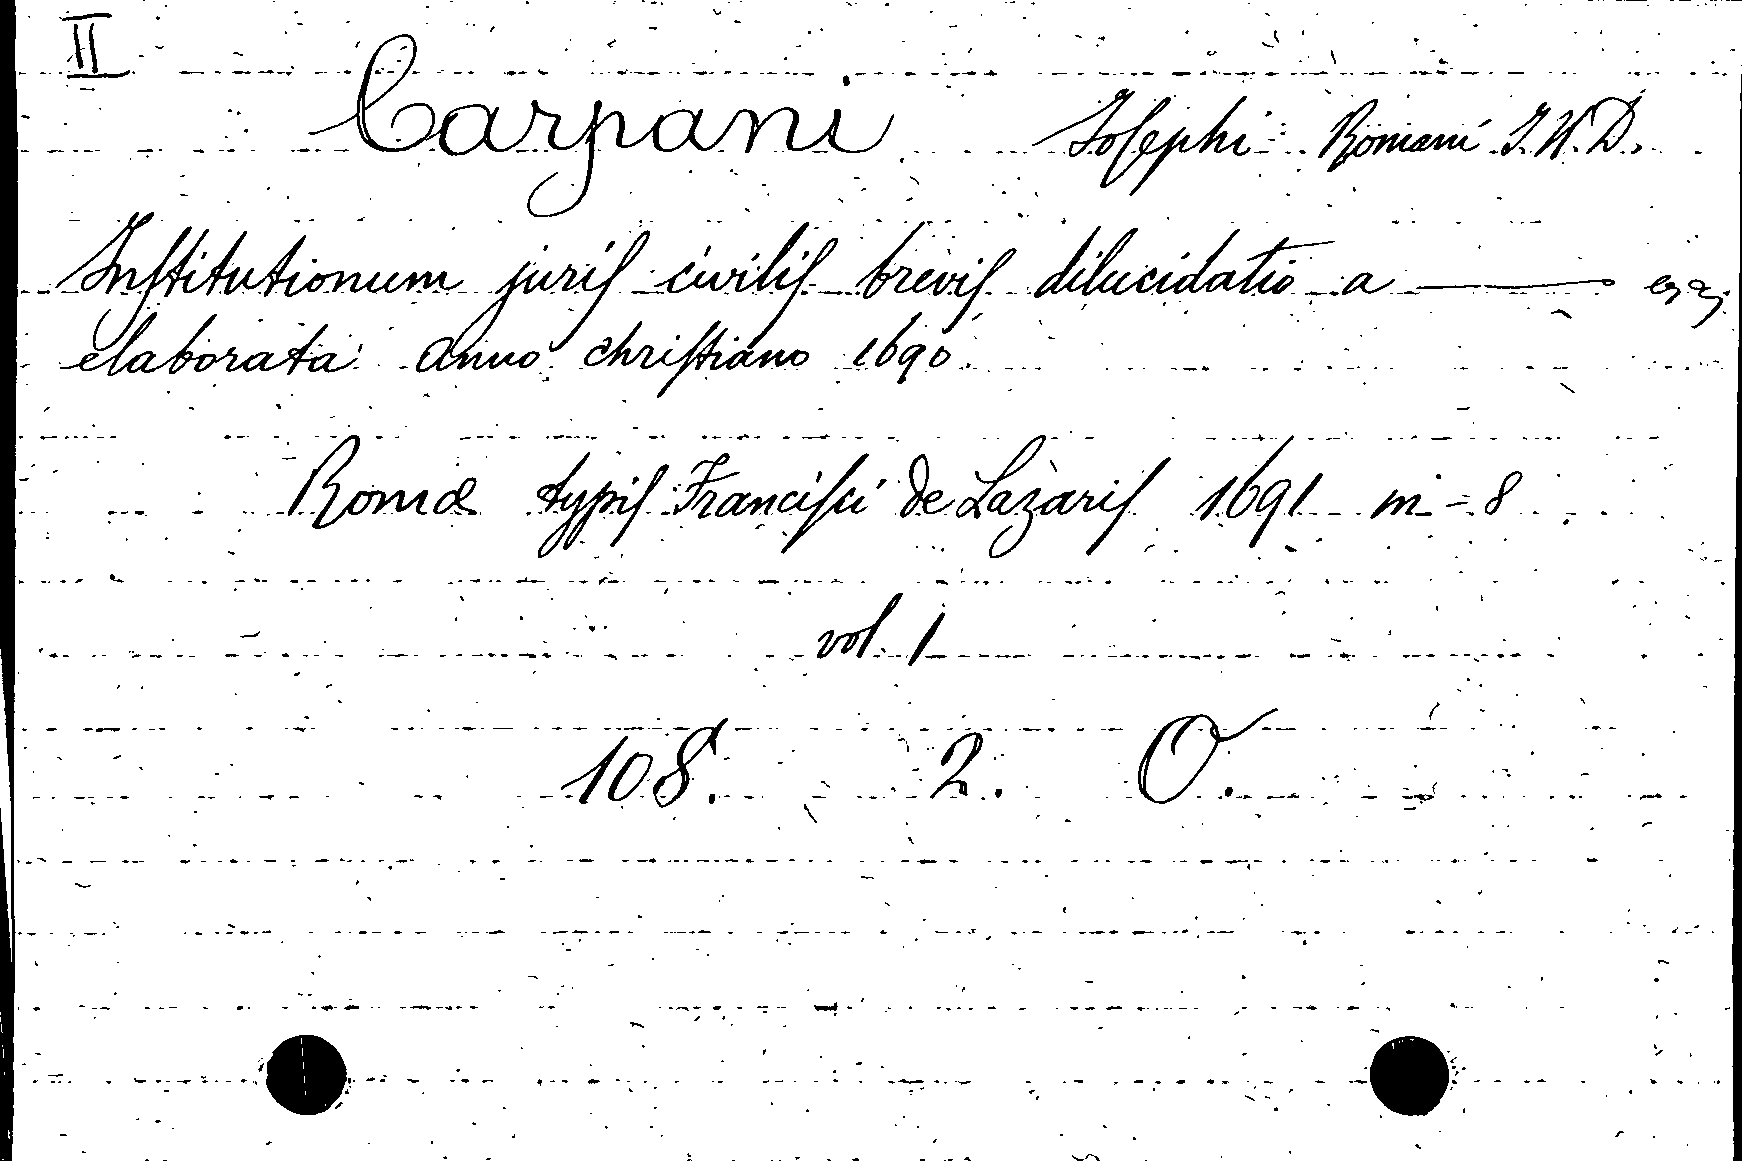 II
Carpani Joſephi Romani J. U. D.
Inſtitutionum juriſ civiliſ breviſ dilucidatio a ———
elaborata anno chriſtiano 1690
Romæ typiſ Franciſci de Lazariſ 1691 in-8
vol. 1
108. 2. O.